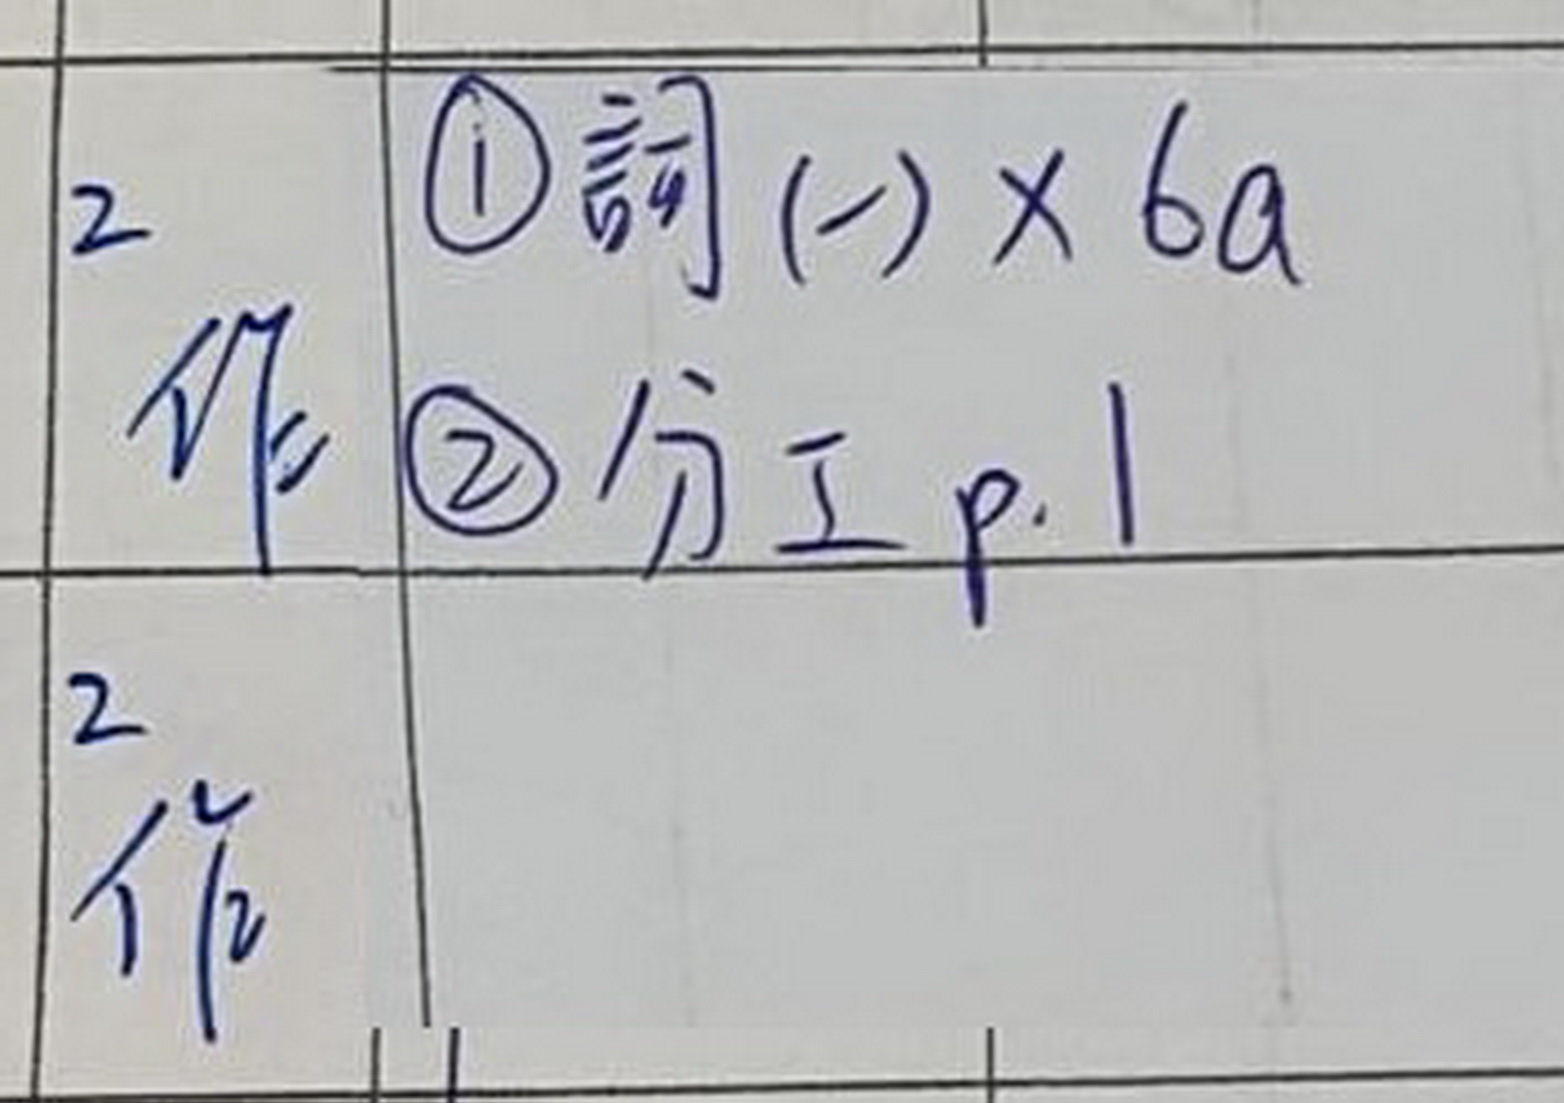 2
作
①詞(一)×6a
②分工 p.1
2
作